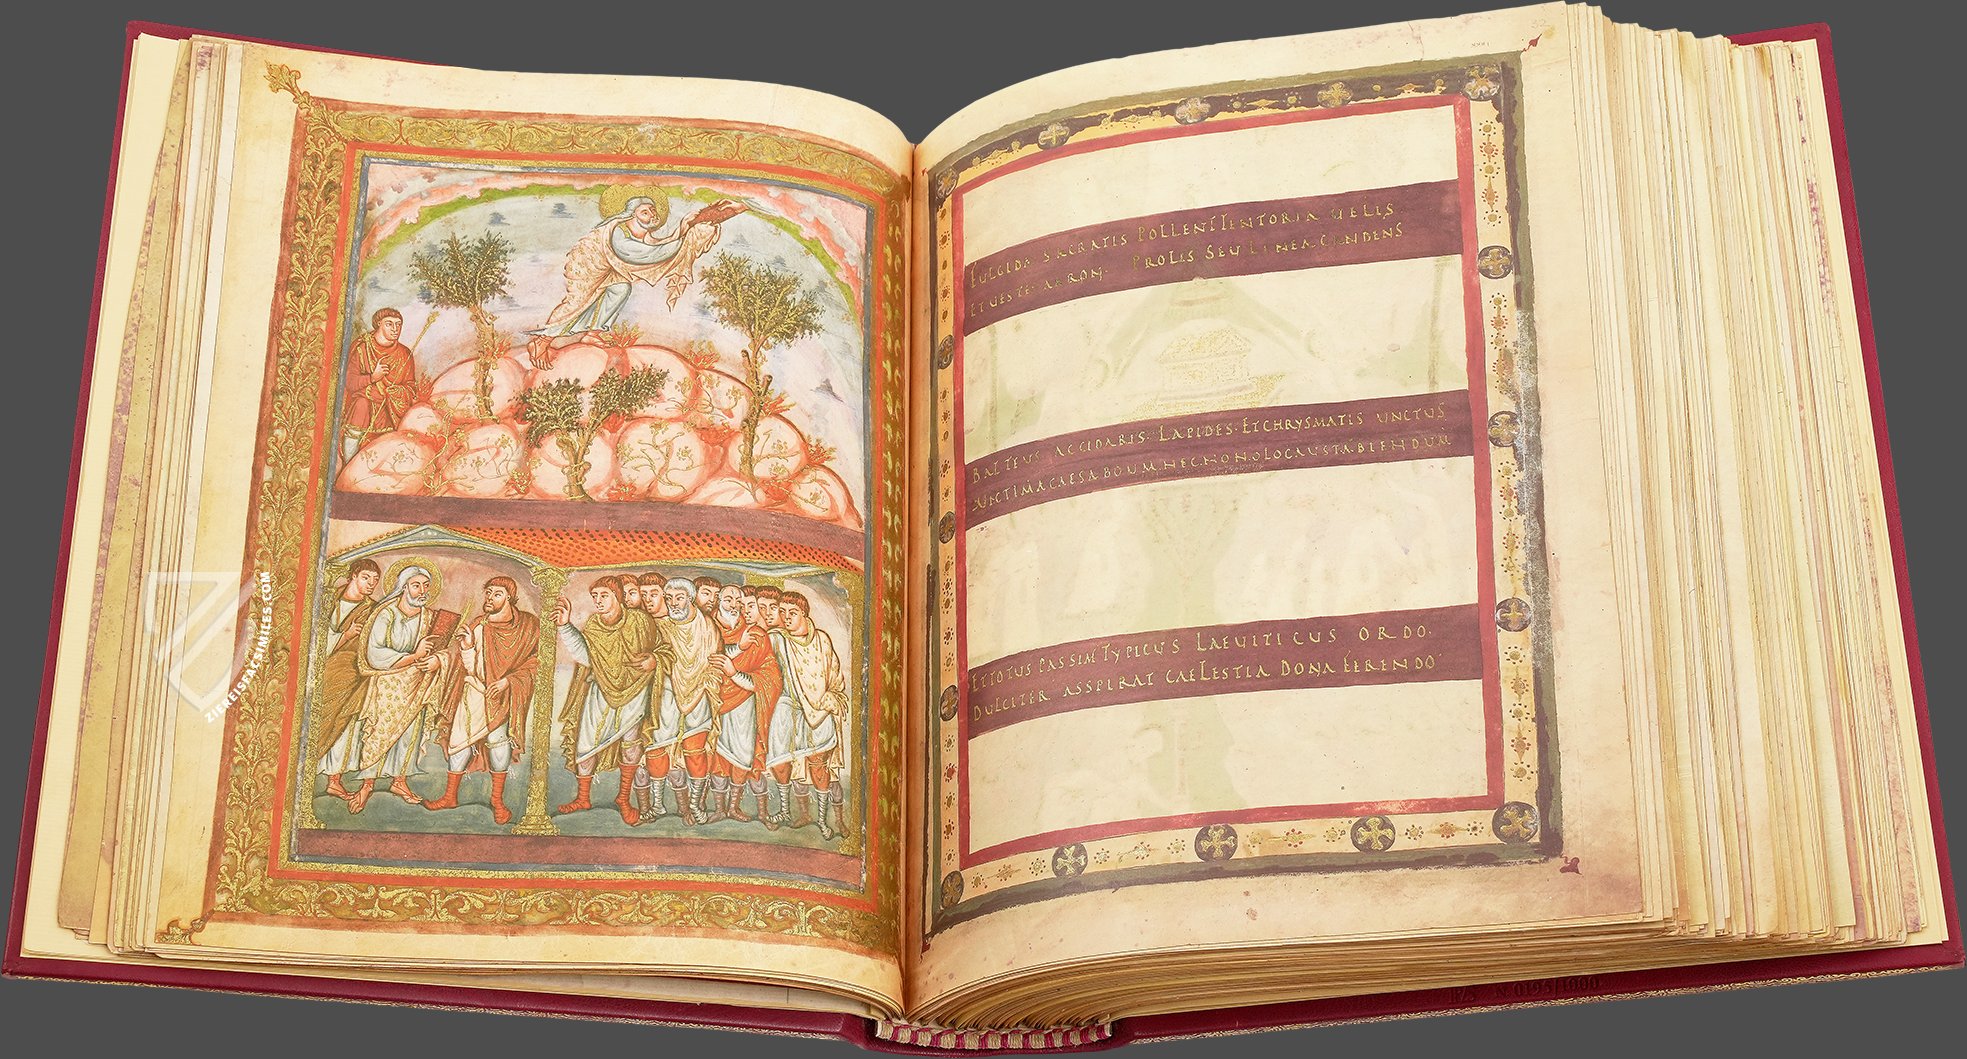 ZIEREISFACSIMILES.COM
32
XXXI
FULGIDA SACRATIS POLLENT TENTORIA UELIS
ET UESTE AARON. PROLIS SEU LINEA CENDENS
BALTEUS ACCIDARIS. LAPIDES. ET CHRYSMATIS UNCTUS
UICTIMA CAESA BOUM. NEC NON OLOCAUSTA BIENDUM
ET TOTUS PASSIM TYPICUS LAEUITICUS ORDO.
DULCITER ASSPIRAT CAELESTIA DONA FERENDO
N 0195/1000